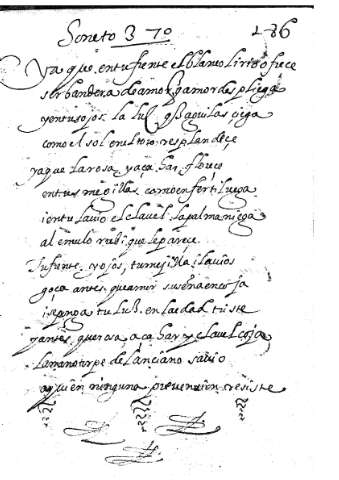 Soneto 37º 286
Ya que en tu frente el blanco lirio ofrece
ser bandera de amor q amor despliega
y en tus ojos la luz q las aguilas ciega
como el sol en el toro resplandeçe
ya que la rosa y açahar florece
en tus megillas como en fertil vega
i en tu lavio el clavel la palma niega
al emulo rubi que le pareçe
tu frente y ojos, tu mejilla i lavios
goça antes que
i se ponga tu luz en la edad triste
y antes que rosa açahar y clavel coja
la mano torpe de l'anciano savio
a quien ninguna prevencion resiste